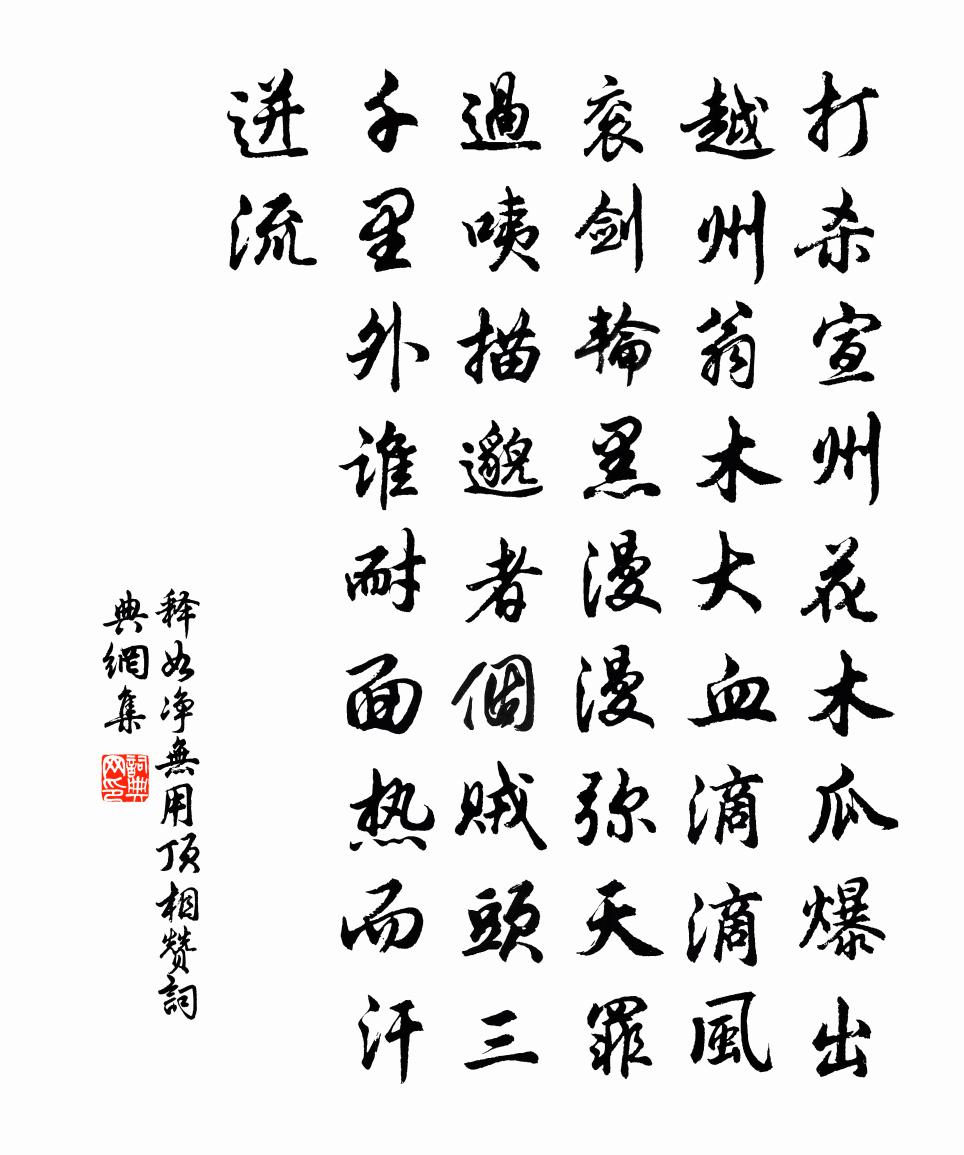 打杀宣州花木瓜爆出
越州翁木大血滴滴風
衮剑輪黑漫漫弥天罪
過咦描邈者個贼頭三
千里外谁耐面热而汗
迸流
释如净無用顶相赞詞
典網集
詞典
网印